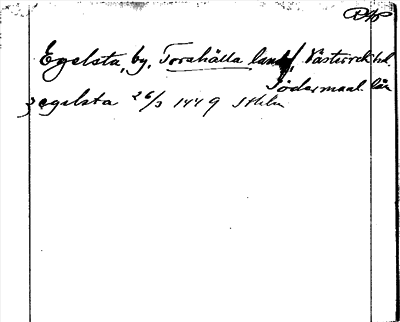 DAP
Egelsta, by, Torshälla landsf, Västerrek hd
Södermanl. län
j egelsta 26/3 1449 Sthlm